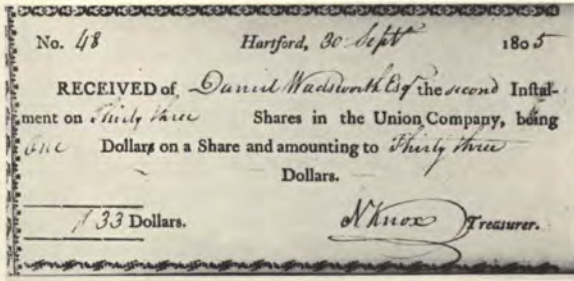 No. 48 Hartford, 30 Sept 1805
RECEIVED of Daniel Wadsworth Esqr the second Instal-
ment on Thirty three Shares in the Union Company, being
One Dollars on a Share and amounting to Thirty three
Dollars.
$ 33 Dollars. N Knox Treasurer.